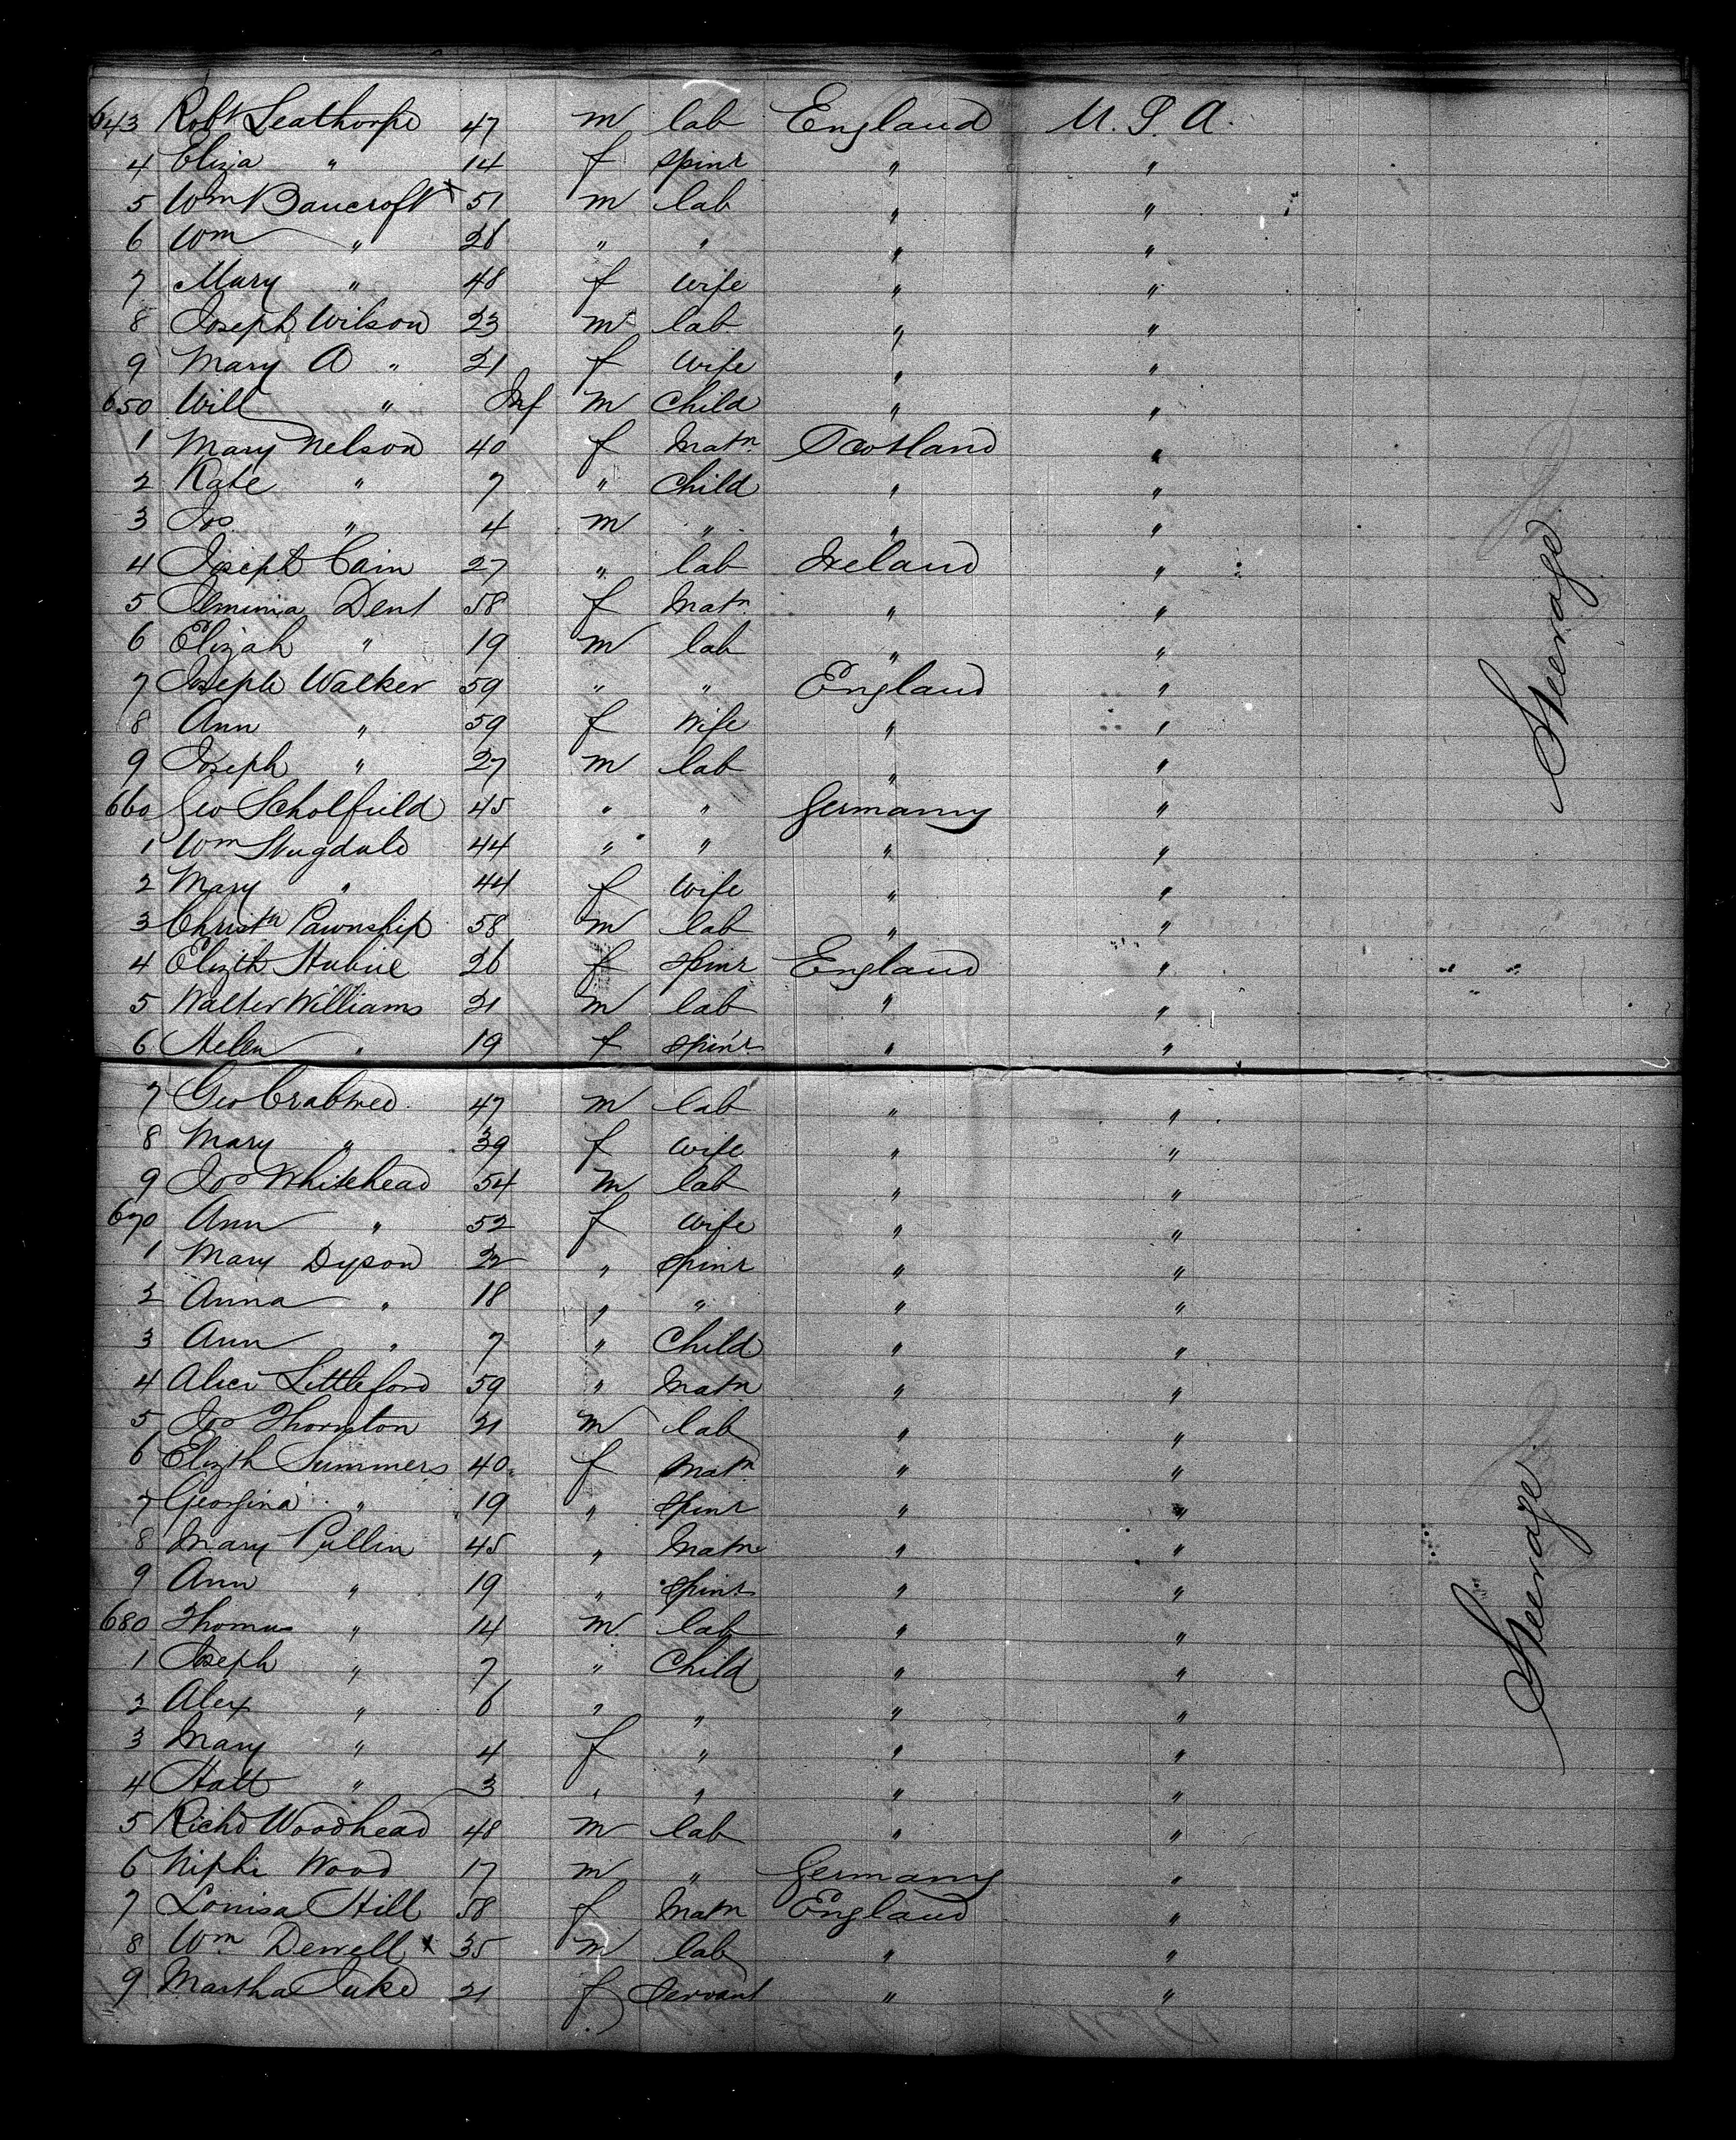 643 Robt Leathorpe 47 m lab England U.S.A.
4 Eliza " 14 f spinr " "
5 Wm Bancroft x 51 m lab " "
6 Wm " 28 " " " "
7 Mary " 48 f wife " "
8 Joseph Wilson 23 m lab " "
9 Mary A " 21 f wife " "
650 Will " Inf m Child " "
1 Mary Nelson 40 f Matn Scotland "
2 Kate " 7 " Child " "
3 Jos " 4 m " " "
4 Joseph Cain 27 " lab Ireland "
5 Jemima Dent 58 f Matn " "
6 Elizah " 19 m lab " "
7 Joseph Walker 59 " " England "
8 Ann " 59 f Wife " "
9 Joseph " 27 m lab " "
660 Geo Scholfield 45 " " Germany "
1 Wm 44 " " " "
2 Mary " 44 f Wife " "
3 Christn 58 m lab " "
4 Elizth 26 f spinr England "
5 Walter Williams 21 m lab " "
6 Helen " 19 f spinr " "
7 Geo Crabtree 47 m lab " "
8 Mary " 39 f wife " "
9 Jos Whitehead 54 m lab " "
670 Ann " 52 f wife " "
1 Mary Dyson 22 " spinr " "
2 Anna " 18 " " " "
3 Ann " 7 " Child " "
4 Alice Littleford 59 " Matn " "
5 Jos Thornton 21 m lab " "
6 Elizth Summers 40 f Matn " "
7 Georgina " 19 " spinr " "
8 Mary Pullin 45 " Matn " "
9 Ann " 19 " spinr " "
680 Thomas " 14 m lab " "
1 Joseph " 7 " Child " "
2 Alex " 6 " " " "
3 Mary " 4 f " " "
4 Hatt " 3 " " " "
5 Richd Woodhead 48 m lab " "
6 Niphi Wood 17 m " Germany "
7 Louisa Hill 58 f Matn England "
8 Wm Dewell x 35 m lab " "
9 Martha Juke 21 f Servant " "
Steerage
Steerage